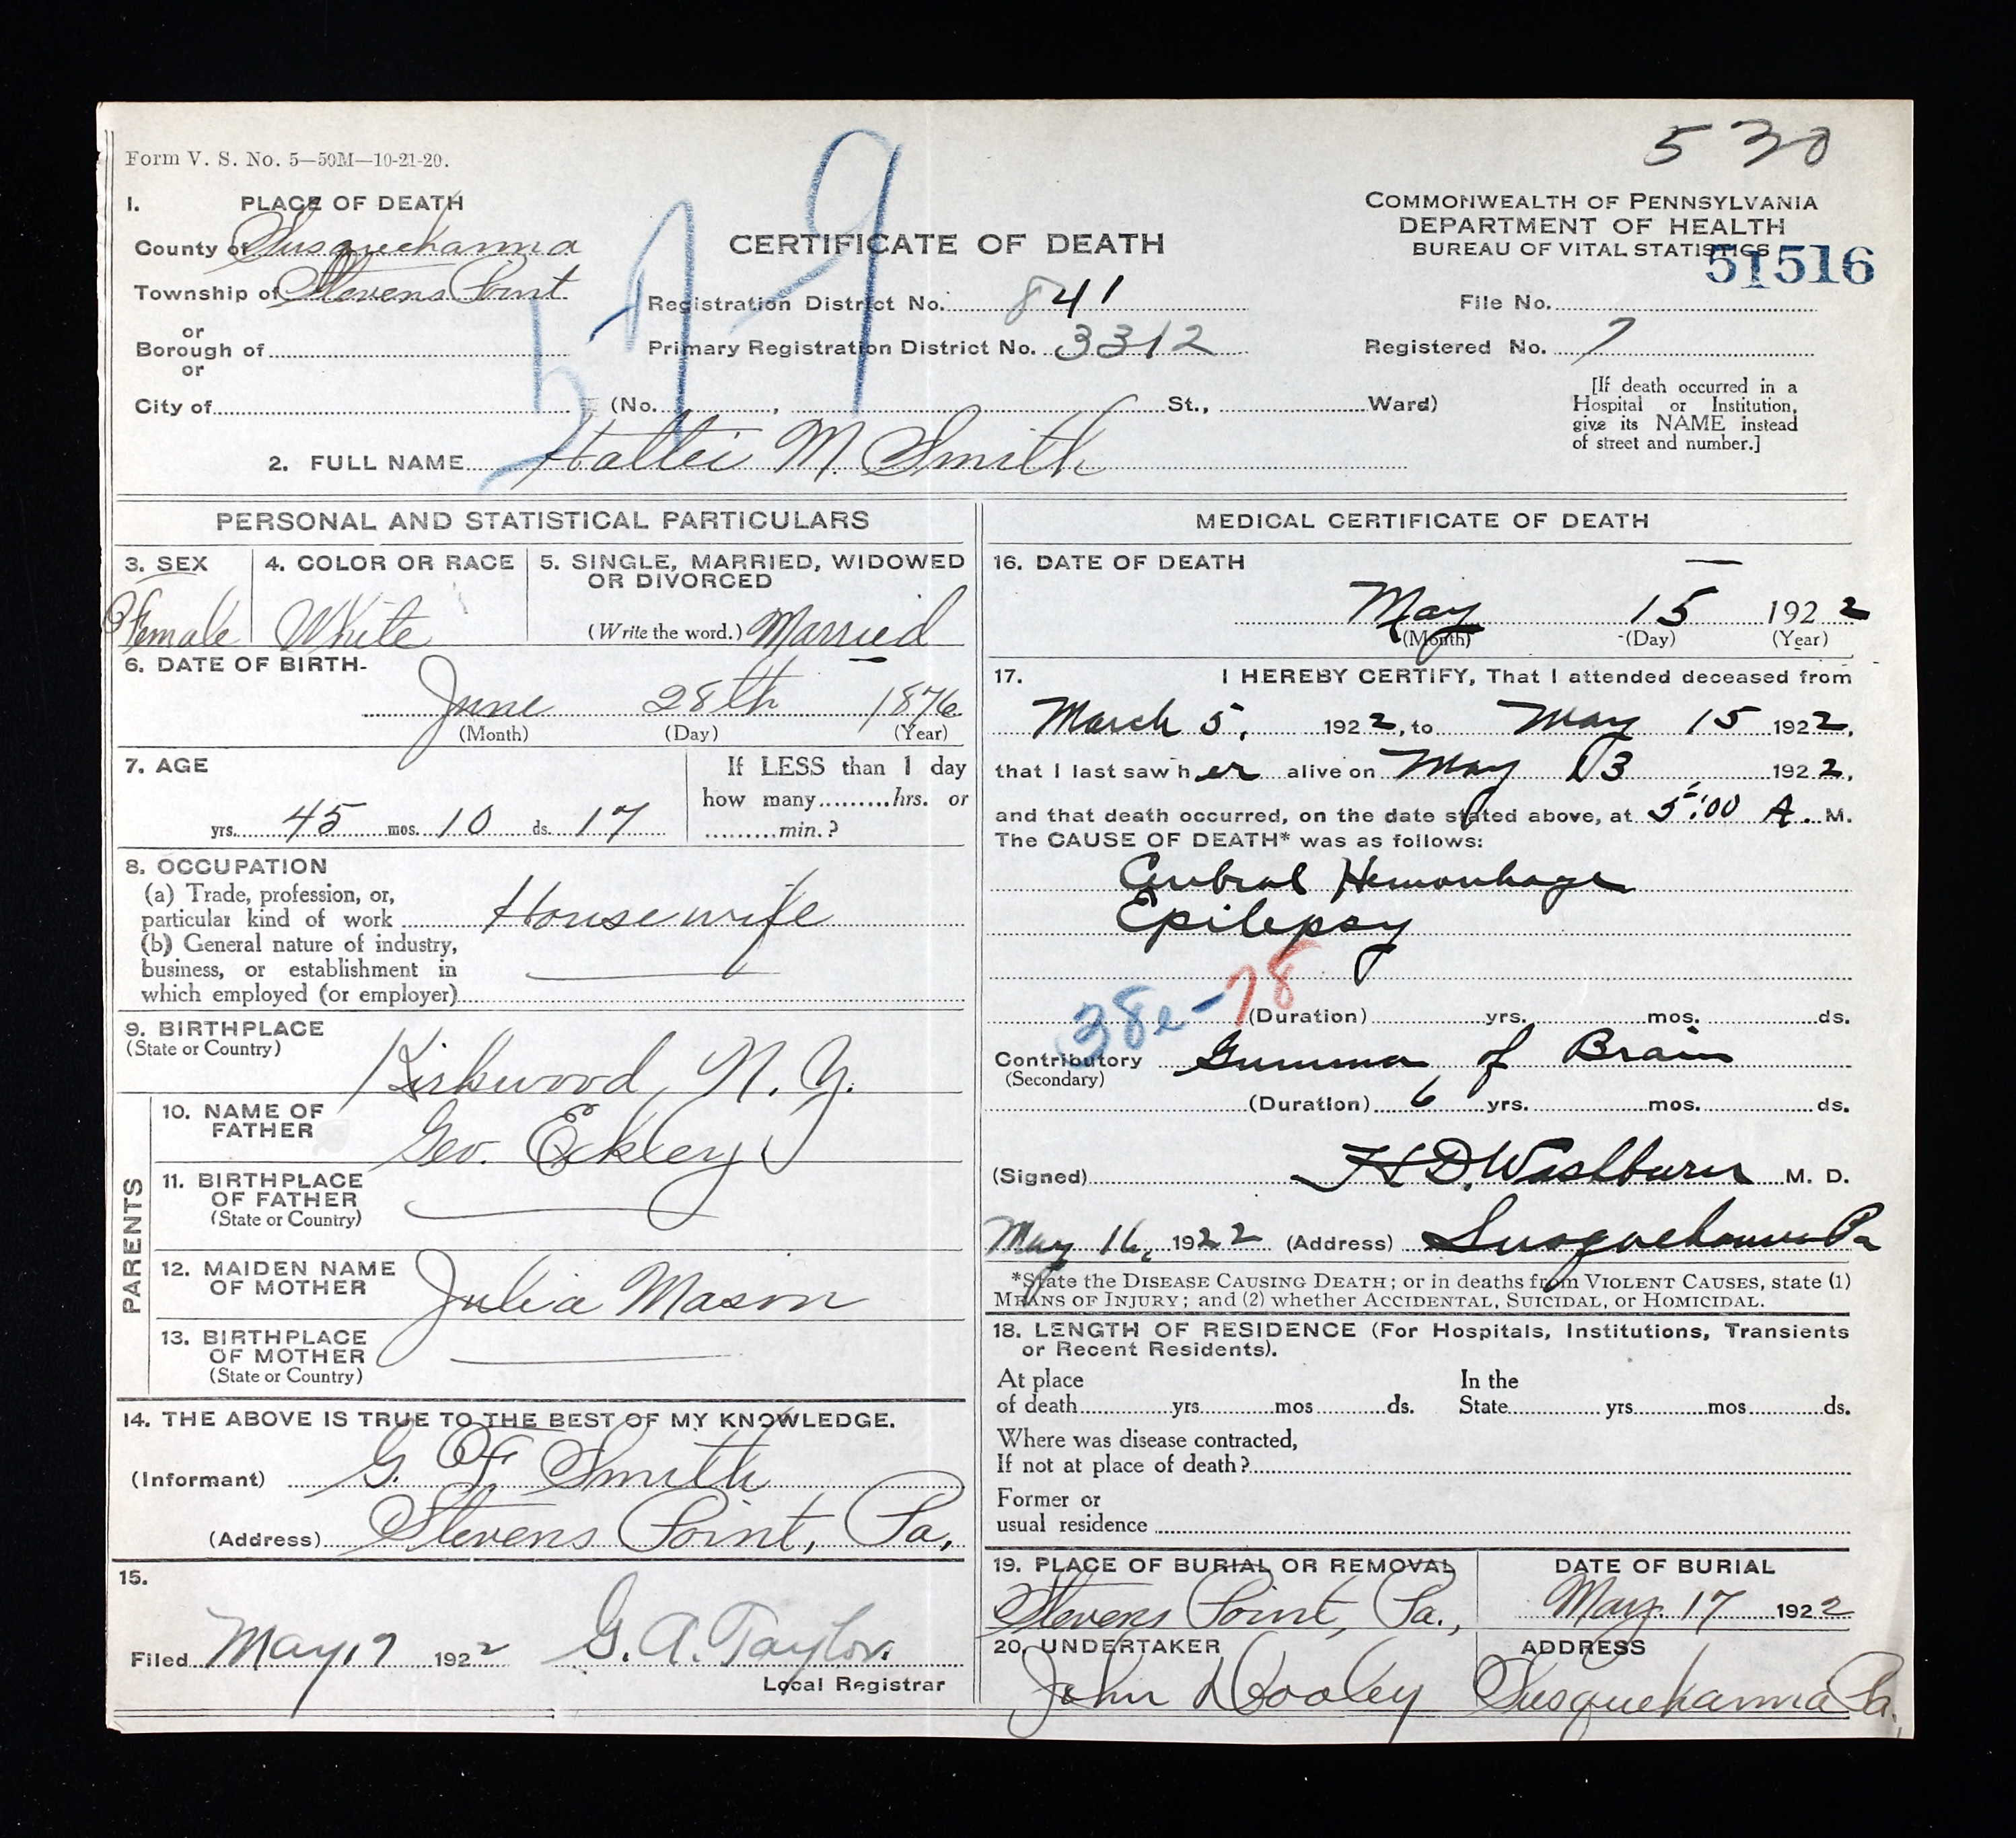 530
Form V. S. No. 5—50M—10-21-20.
1. PLACE OF DEATH
County of Susquehanna
Township of Stevens Point
or
Borough of
or
City of
CERTIFICATE OF DEATH
Registration District No. 841
Primary Registration District No. 3312
(No. , St., Ward)
COMMONWEALTH OF PENNSYLVANIA
DEPARTMENT OF HEALTH
BUREAU OF VITAL STATISTICS
51516
File No.
Registered No. 7
[If death occurred in a
Hospital or Institution,
give its NAME instead
of street and number.]
2. FULL NAME Hattie M. Smith
PERSONAL AND STATISTICAL PARTICULARS
3. SEX
Female
4. COLOR OR RACE
White
5. SINGLE, MARRIED, WIDOWED
OR DIVORCED
(Write the word.) Married
6. DATE OF BIRTH-
June 28th 1876
(Month) (Day) (Year)
7. AGE
yrs. 45 mos. 10 ds. 17
If LESS than 1 day
how many hrs. or
min.?
8. OCCUPATION
(a) Trade, profession, or,
particular kind of work Housewife
(b) General nature of industry,
business, or establishment in
which employed (or employer)
9. BIRTHPLACE
(State or Country)
Kirkwood, N. Y.
PARENTS
10. NAME OF
FATHER
Geo. Eckley
11. BIRTHPLACE
OF FATHER
(State or Country)
12. MAIDEN NAME
OF MOTHER
Julia Mason
13. BIRTHPLACE
OF MOTHER
(State or Country)
14. THE ABOVE IS TRUE TO THE BEST OF MY KNOWLEDGE.
(Informant) G. F. Smith
(Address) Stevens Point, Pa,
15.
Filed May 17 1922 G. A. Taylor
Local Registrar
MEDICAL CERTIFICATE OF DEATH
16. DATE OF DEATH
May 15 1922
(Month) (Day) (Year)
17. I HEREBY CERTIFY, That I attended deceased from
March 5, 1922, to May 15 1922,
that I last saw her alive on May 13 1922,
and that death occurred, on the date stated above, at 5:00 A. M.
The CAUSE OF DEATH* was as follows:
Cerebral Hemorrhage
Epilepsy
38e-78
(Duration) yrs. mos. ds.
Contributory Gumma of Brain
(Secondary)
(Duration) 6 yrs. mos. ds.
(Signed) H D. Washburn M. D.
May 16, 1922 (Address) Susquehanna Pa
*State the DISEASE CAUSING DEATH; or in deaths from VIOLENT CAUSES, state (1)
MEANS OF INJURY; and (2) whether ACCIDENTAL, SUICIDAL, or HOMICIDAL.
18. LENGTH OF RESIDENCE (For Hospitals, Institutions, Transients
or Recent Residents).
At place
of death yrs mos ds.
In the
State yrs mos ds.
Where was disease contracted,
If not at place of death?
Former or
usual residence
19. PLACE OF BURIAL OR REMOVAL
Stevens Point, Pa.,
DATE OF BURIAL
May 17 1922
20. UNDERTAKER
John Dooley
ADDRESS
Susquehanna Pa.